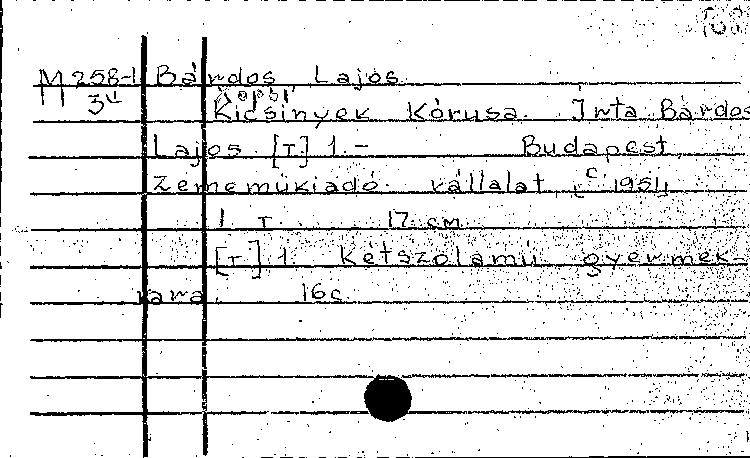 M 258-1 Bárdos Lajos
3d
Kicsinyek Kórusa. Irta Bárdos
Lajos [T] 1.- Budapest,
Zeneműkiadó vállalat, c 1954
1 T. 17 cm
[T] 1. Kétszólamú gyermek-
kara. 16c